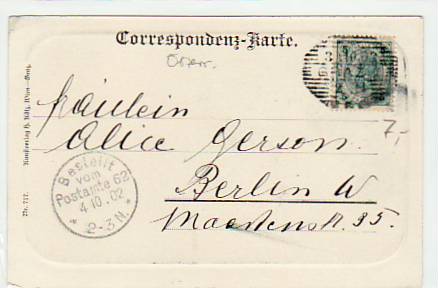 Correspondenz-Karte.
Österr.
7,-
Fräulein
Alice Gerson.
Berlin W
Maassenstr. 35.
Bestellt
vom
Postamte 62
4.10.02
2-3 N.
Nr. 717.